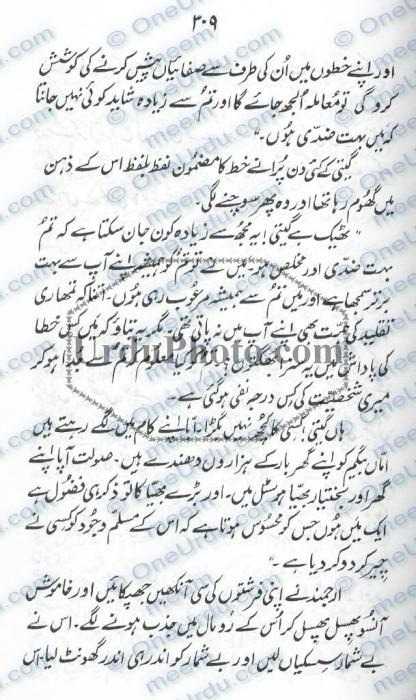 ۳۰۹
اور اپنے خطوں میں اُن کی طرف سے صفائیاں پیش کرنے کی کوشش
کرو گی تو معاملہ اُلجھ جائے گا اور تم سے زیادہ شاید کوئی نہیں جانتا
کہ میں بہت ضدّی ہوں۔"
گیتی کے کئی دن پُرانے خط کا مضمون لفظ بلفظ اس کے ذہن
میں گھُوم رہا تھا اور وہ پھر سوچنے لگی۔
"ٹھیک ہے گیتی! یہ مجھ سے زیادہ کون جان سکتا ہے کہ تم
بہت ضدّی اور مخلص ہو۔ میں نے تم کو ہمیشہ اپنے آپ سے بہت
برتر سمجھا ہے اور میں تم سے ہمیشہ مرعُوب رہی ہوں۔ اتنا کہ تمھاری
تقلید کی ہمت بھی اپنے آپ میں نہ پاتی تھی۔ مگر یہ بتاؤ کہ میں کس خطا
کی پاداش میں یہ سزا بھگتوں ہو کر
میری شخصیت کی کس درجہ نفی ہو گئی ہے۔
ہاں گیتی! کسی کا کچھ نہیں بگڑا۔ ابّا اپنے کام میں لگے رہتے ہیں
امّاں بیگم کو اپنے گھر بار کے ہزاروں دھندے ہیں۔ صولت آپا اپنے
گھر اور بختیار بھیّا ہوسٹل میں۔ اور بڑے بھیّا کا تو ذکر ہی فضُول ہے
ایک میں ہوں جس کو محسُوس ہوتا ہے کہ اس کے مسلّم وجُود کو کسی نے
چیر کر دو کر دیا ہے۔"
ارجمند نے اپنی فرشتوں کی سی آنکھیں جھپکائیں اور خاموش
آنسو پھسل پھسل کر اُس کے رُومال میں جذب ہونے لگے۔ اس نے
بے شمار سسکیاں لیں اور بے شمار کو اندر ہی اندر گھونٹ لیا۔ بس
UrduPhoto.com